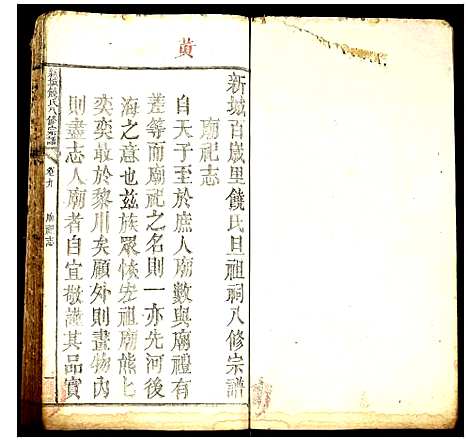 黄
新城百歲里饒氏旦祖祠八修宗譜
廟祀志
自天子至於庶人廟數與廟禮有
差等而廟祀之名則一亦先河後
海之意也兹族眾恢宏祖廟熊匕
奕奕敢於黎川矣顧外則盡物內
則盡志人廟者自宜敬謹其品實
新城饒氏八修宗譜
卷首
廟祀志